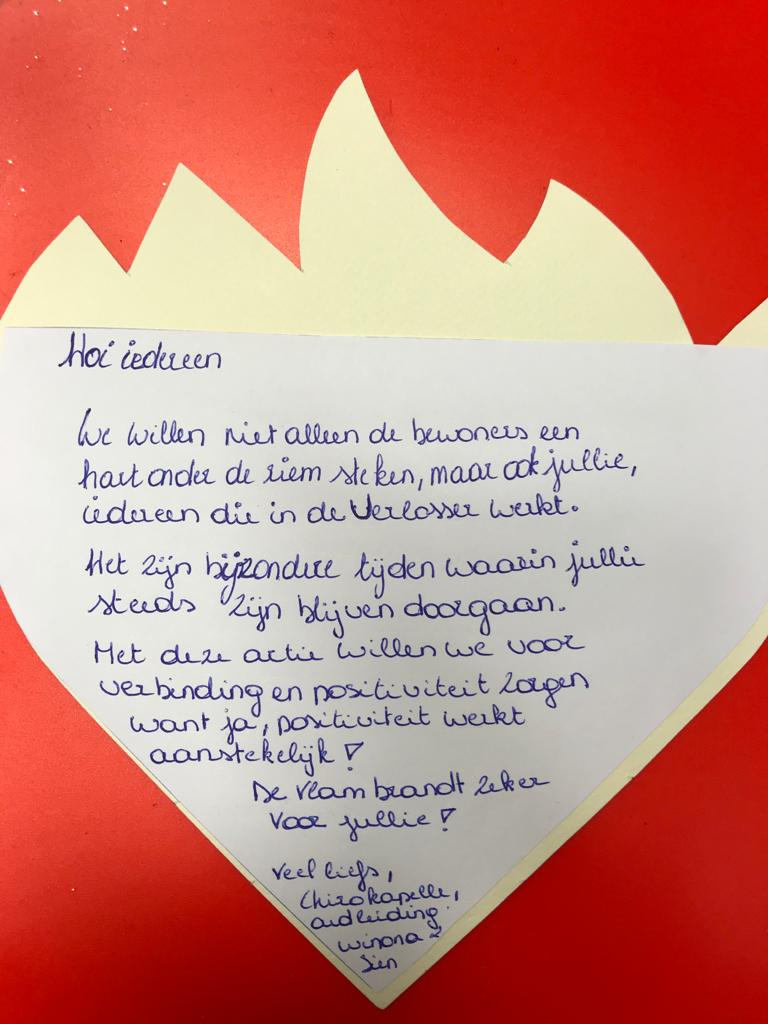 Hoi iedereen
We willen niet alleen de bewoners een
hart onder de riem steken, maar ook jullie,
iedereen die in de Verlosser werkt.
Het zijn bijzondere tijden waarin jullie
steeds zijn blijven doorgaan.
Met deze actie willen we voor
verbinding en positiviteit zorgen
want ja, positiviteit werkt
aanstekelijk!
De vlam brandt zeker
voor jullie!
veel liefs,
Chirokapelle,
oudleiding
winona &
Sien